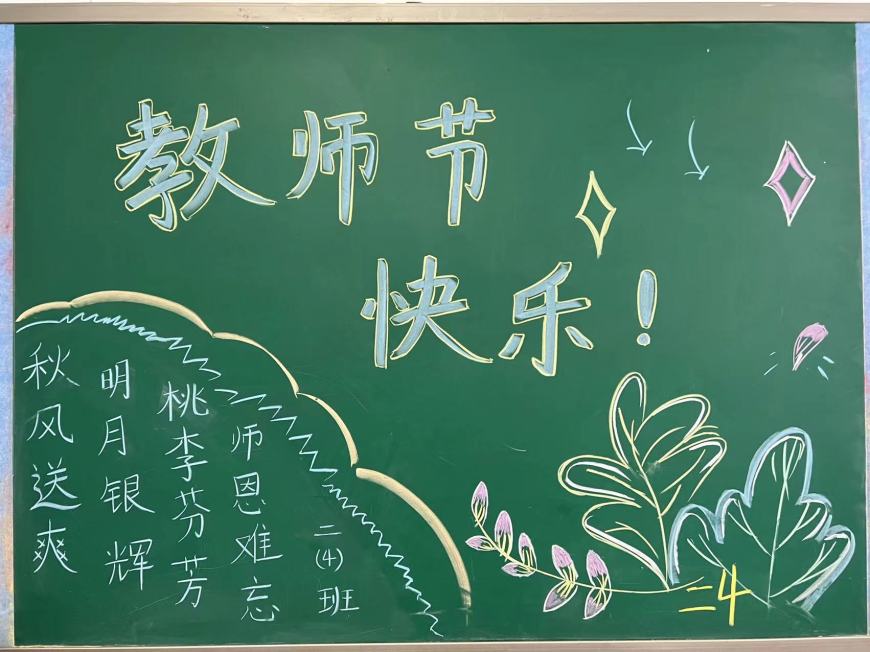 教师节
快乐！
秋风送爽
明月银辉
桃李芬芳
师恩难忘
二(4)班
二4